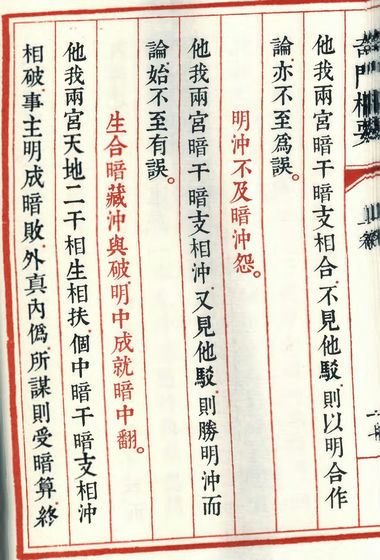 他我兩宮暗干暗支相合不見他駁則以明合作
論亦不至爲誤。
明沖不及暗沖怨。
他我兩宮暗干暗支相沖又見他駁則勝明沖而
論始不至有誤。
生合暗藏沖與破明中成就暗中翻。
他我兩宮天地二干相生相扶個中暗干暗支相沖
相破事主明成暗敗外真內僞所謀則受暗算終